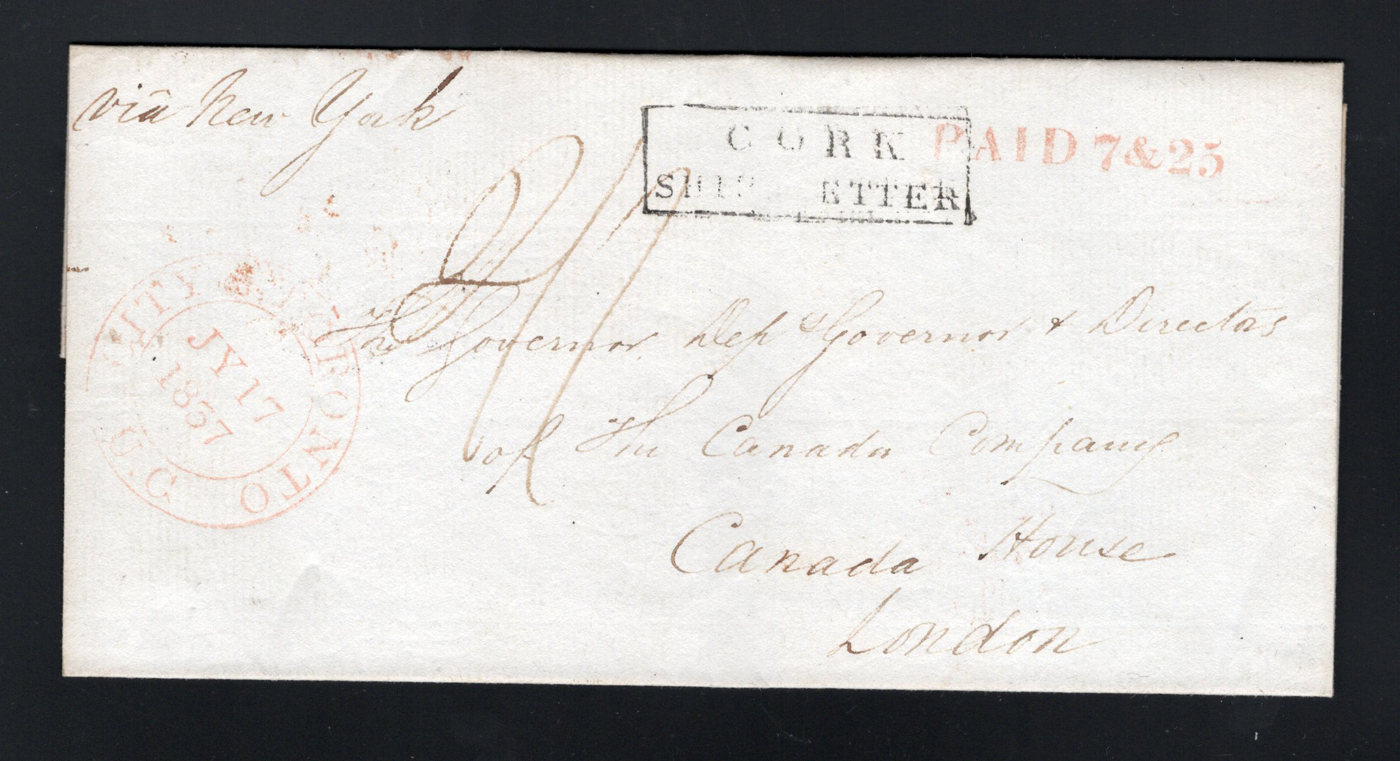 via New York
CORK
SHIP LETTER
PAID 7&25
CITY OF TORONTO
U.C
JY 17
1837
The Governor Dep Governor & Directors
of The Canada Company
Canada House
London